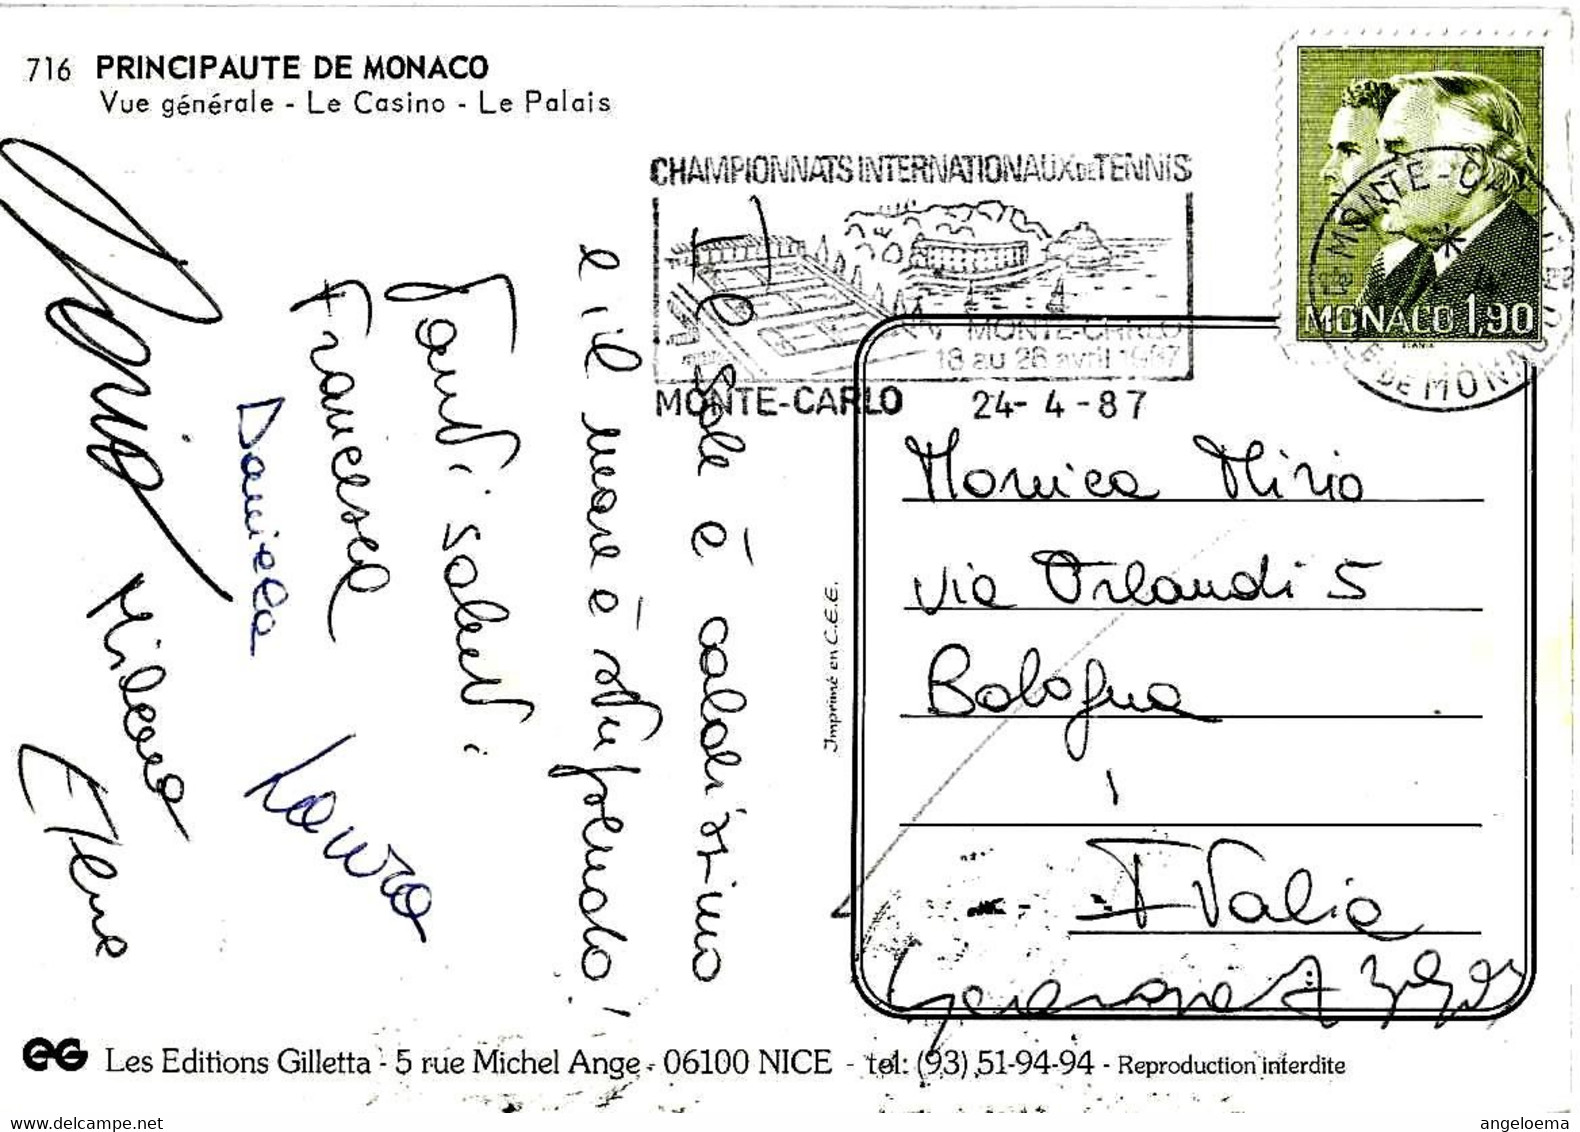 716 PRINCIPAUTE DE MONACO
Vue générale - Le Casino - Le Palais
CHAMPIONNATS INTERNATIONAUX DE TENNIS
MONTE-CARLO
18 au 26 avril 1987
MONTE-CARLO 24-4-87
MONTE-CARLO
MONACO 1,90
Il sole è caldissimo
e il mare è stupendo!
Tanti saluti
Francesca
Daniela
Laura
Milena
Imprimé en C.E.E.
Monica Mirio
via Orlandi 5
Bologna
Italia
GG Les Editions Gilletta - 5 rue Michel Ange - 06100 NICE - tel: (93) 51-94-94 - Reproduction interdite
www.delcampe.net
angeloema